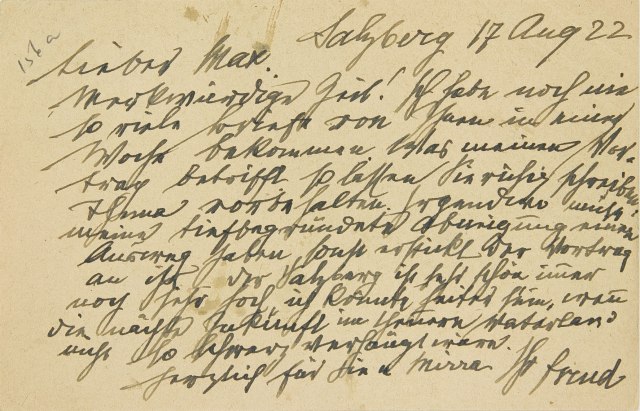 156a
Salzberg 17 Aug 22
Lieber Max.
Merkwürdige Zeit! Ich habe noch nie
so viele Briefe von Ihnen in einer
Woche bekommen. Was meinen Vor-
trag betrifft so lassen Sie ruhig schreiben
Thema vorbehalten. Irgendwo muß
meine tiefbegründete Abneigung einen
Ausweg haben sonst erstickt der Vortrag
an ihr. Der Salzberg ist sehr schön immer
noch sehr hoch, ich könnte heiter sein, wenn
die nächste Zukunft im theuern Vaterland
nicht so schwarz verhängt wäre.
Herzlich für Sie u Mirra Ihr Freud